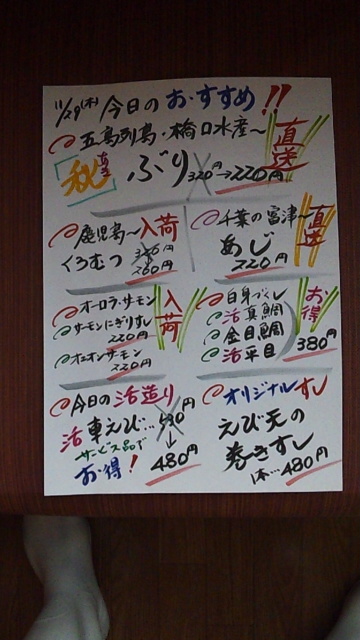 11/29(木)今日のおすすめ!!
五島列島・橋口水産〜
直送
秋 あき ぶり 320円→220円
鹿児島〜入荷
くろむつ
260円
千葉の富津〜
直送
あじ
220円
オーロラサーモン
サーモンにぎりすし
220円
オニオンサーモン
220円
入荷
白身づくし
活真鯛
金目鯛
活平目
お得
380円
今日の活造り
活車えび…490円
サービス品で
お得! 480円
オリジナルすし
えび天の
巻きすし
1本…480円